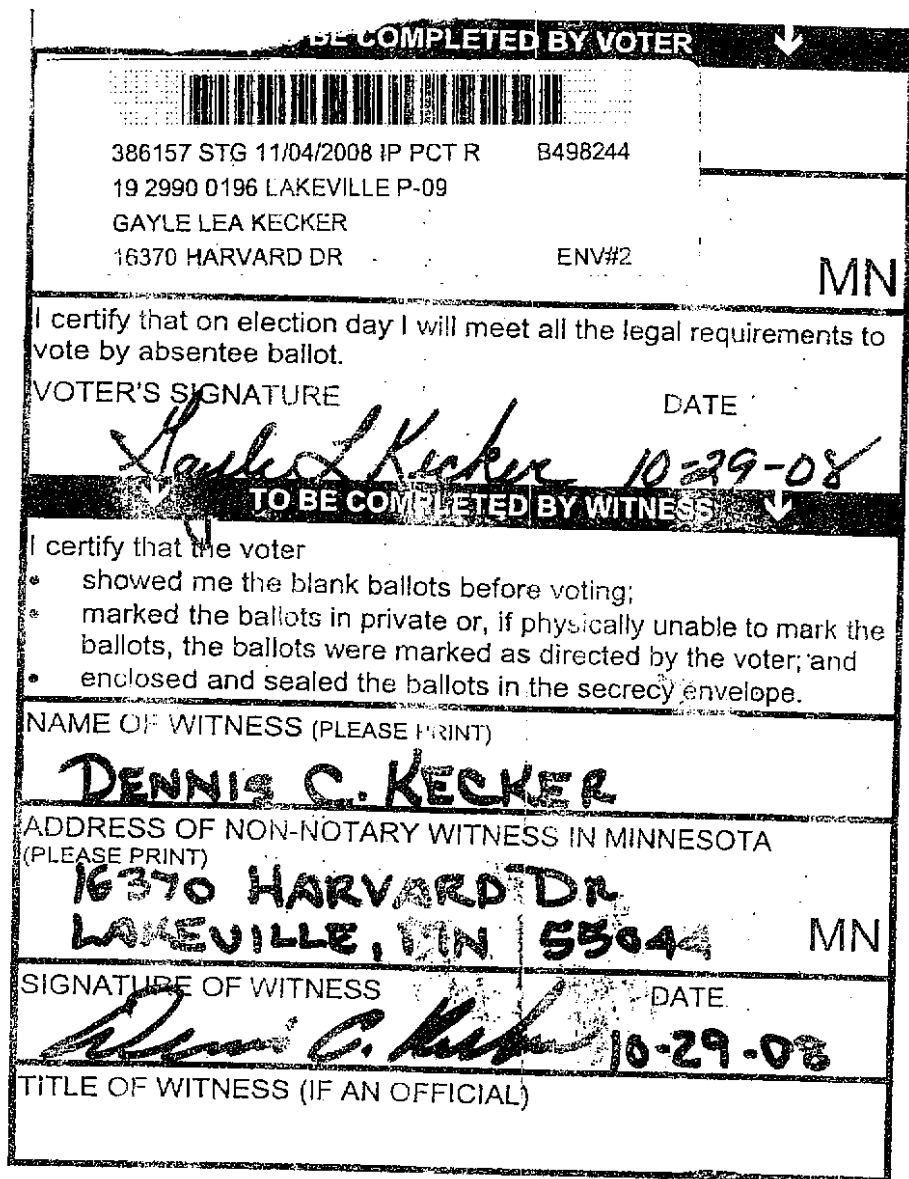 BE COMPLETED BY VOTER
386157 STG 11/04/2008 IP PCT R B498244
19 2990 0196 LAKEVILLE P-09
GAYLE LEA KECKER
16370 HARVARD DR ENV#2
MN
I certify that on election day I will meet all the legal requirements to
vote by absentee ballot.
VOTER'S SIGNATURE DATE
Gayle L Kecker 10-29-08
TO BE COMPLETED BY WITNESS
I certify that the voter
• showed me the blank ballots before voting;
• marked the ballots in private or, if physically unable to mark the
ballots, the ballots were marked as directed by the voter; and
• enclosed and sealed the ballots in the secrecy envelope.
NAME OF WITNESS (PLEASE PRINT)
DENNIS C. KECKER
ADDRESS OF NON-NOTARY WITNESS IN MINNESOTA
(PLEASE PRINT)
16370 HARVARD DR
LAKEVILLE, MN 55044 MN
SIGNATURE OF WITNESS DATE
Dennis C. Kecker 10-29-08
TITLE OF WITNESS (IF AN OFFICIAL)